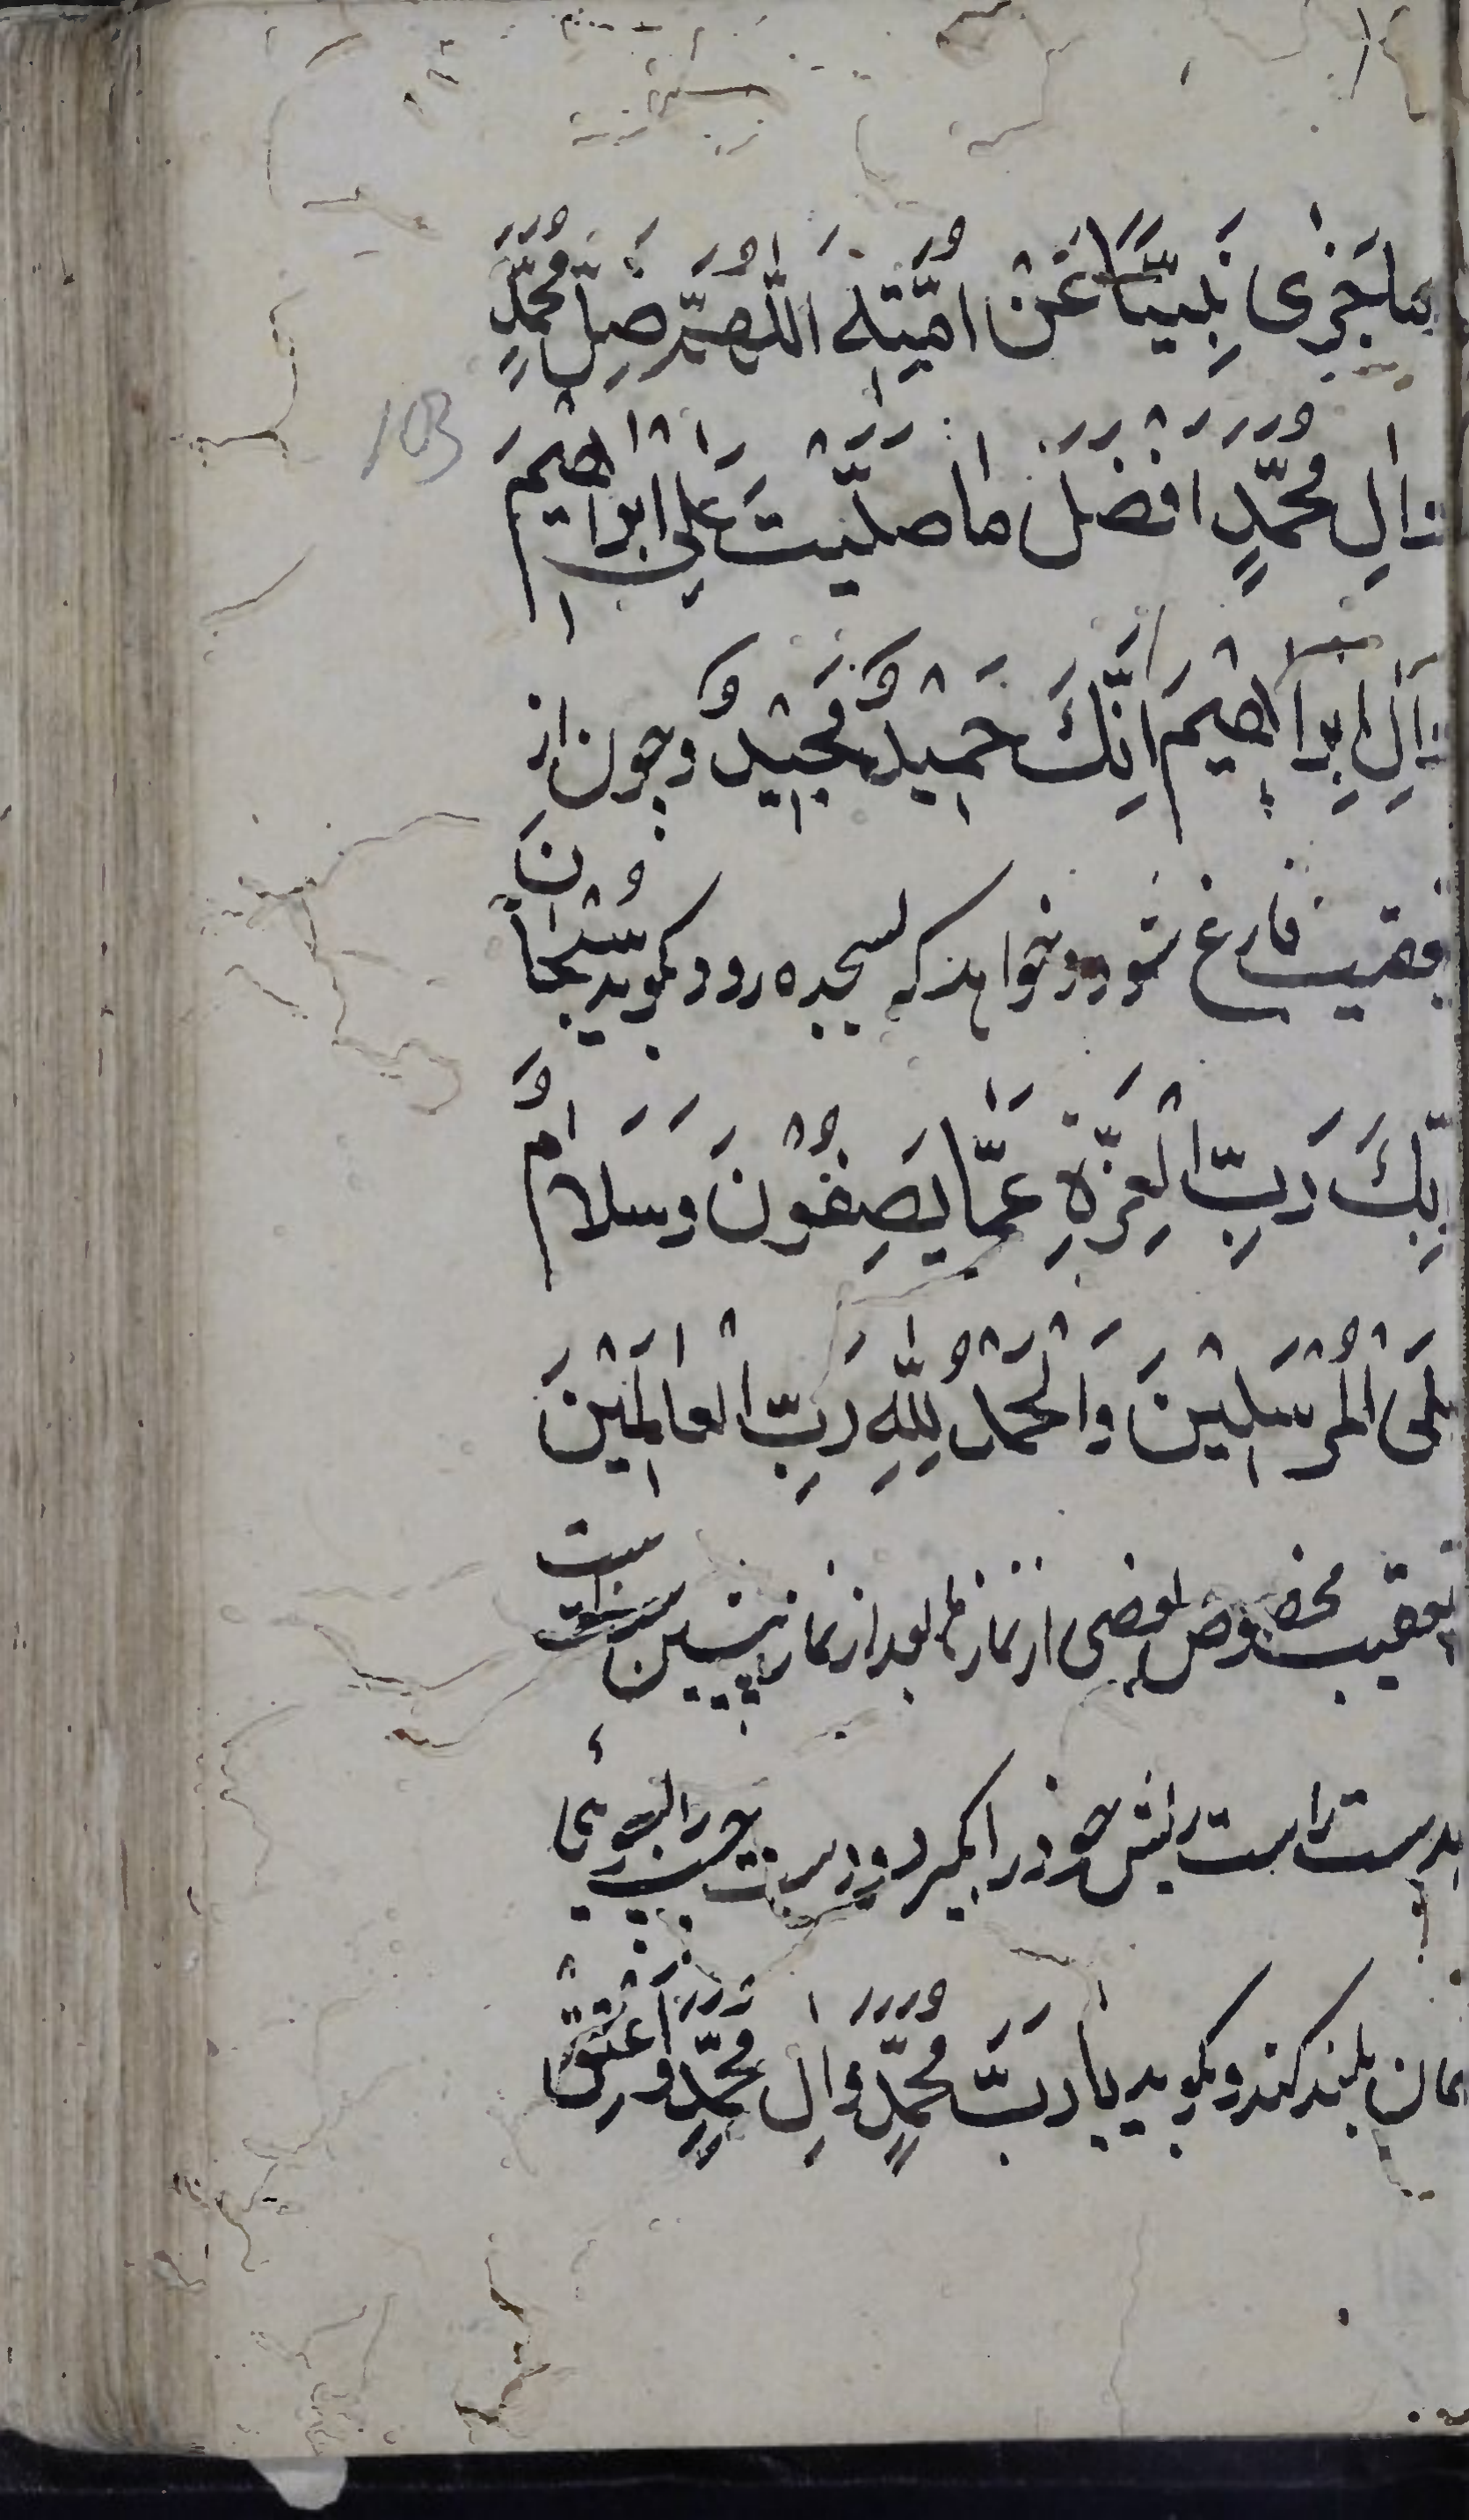 ما جَزٰى نَبِيًّا عَنْ اُمَّتِهِ اَللّٰهُمَّ صَلِّ مُحَمَّدٍ
103
وَاٰلِ مُحَمَّدٍ اَفْضَلَ ما صَلَّيْتَ عَلٰى اِبْراهِيمَ
وَاٰلِ اِبْراهِيْمَ اِنَّكَ حَمِيْدٌ مَجِيْدٌ و چون از
تعقیب فارغ شود و خواهد که بسجده رود بگوید سُبْحانَ
رَبِّكَ رَبِّ الْعِزَّةِ عَمَّا يَصِفُوْنَ وَسَلامٌ
عَلَى الْمُرْسَلِيْنَ وَالْحَمْدُ لِلّٰهِ رَبِّ الْعالَمِيْنَ
تعقیب مخصوص بعضی از نمازها بعد از نماز پیشین سنت است
بدست راست ریش خود را بگیرد و دست چپ را بسوی
آسمان بلند کند و بگوید يا رَبَّ مُحَمَّدٍ وَاٰلِ مُحَمَّدٍ وَ اَعْتِقْ